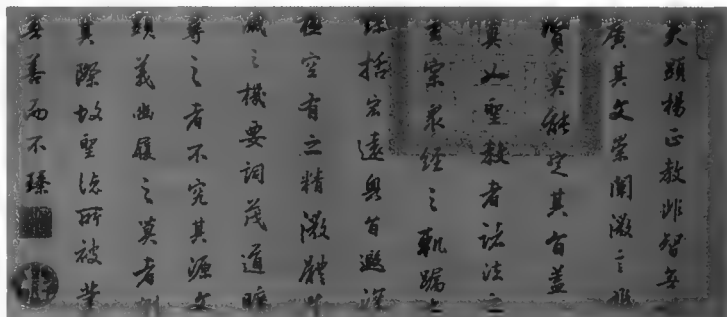 夫顯揚正教非智無
廣其文崇闡微言非
賢莫能定其旨盖
真如聖教者諸法之
玄宗衆經之軌躅
綜括宏遠奧旨遐深
極空有之精微體生
滅之機要詞茂道曠
尋之者不究其源文
顯義幽履之莫者測
其際故聖德所被業
無善而不臻